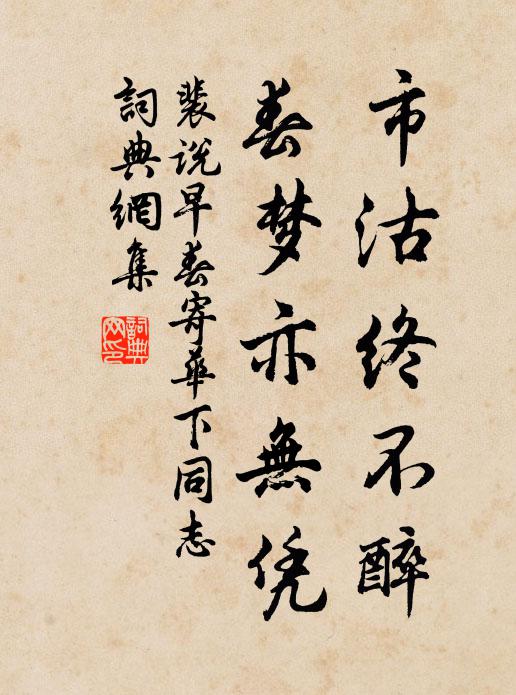 市沽终不醉
春梦亦無凭
裴说早春寄華下同志
詞典網集
詞典網印